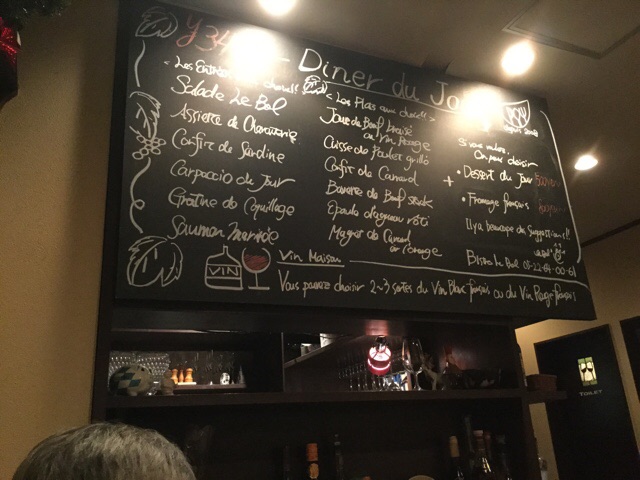 Diner du
« Les
Salade Le Bol
Assiette de Charcuterie
Confit de Sardine
Carpaccio du Jour
Gratine de Coquillage
Saumon Marinée
« Les Plats aux choix »
Joue de Bœuf braisé
au Vin Rouge
Cuisse de Poulet grillé
Confit de Canard
Bavette de Bœuf steak
Epaule d'agneau rôti
Magret de Canard
à l'orange
Si vous voulez,
On peut choisir
+
• Dessert du Jour
• Fromage français
Il y a beaucoup de Suggestions!!
VIN
Vin Maison
Vous pouvez choisir 2~3 sortes du Vin Blanc français ou du Vin Rouge français
TOILET